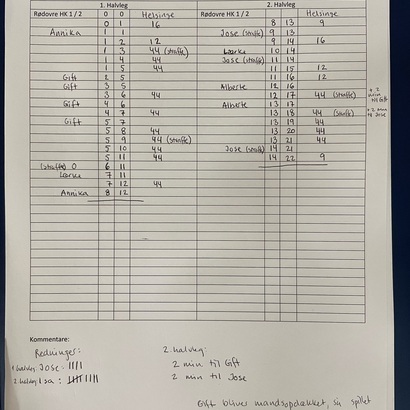 1. Halvleg 2. Halvleg
Rødovre HK 1 / 2 0 0 Helsinge Rødovre HK 1 / 2 Helsinge
0 1 16 8 13 9
Annika 1 1 Jose (straffe) 9 13
1 2 12 9 14 16
1 3 44 (straffe) Lærke 10 14
1 4 44 Jose (straffe) 11 14
1 5 44 11 15 12
Gift 2 5 11 16 12
Gift 3 5 Alberte 12 16
3 6 44 12 17 44 (straffe)
Gift 4 6 Alberte 13 17
4 7 44 13 18 44 (straffe)
Gift 5 7 13 19 44
5 8 44 13 20 44
5 9 44 (straffe) 13 21 44
5 10 44 Jose (straffe) 14 21
5 11 44 14 22 9
(straffe) 6 11
Lærke 7 11
7 12 44
Annika 8 12
+ 2 min til Gift
+ 2 min til Jose
Kommentare:
Redninger: 2. halvleg:
1 halvleg Jose: 2 min til Gift
2 halvleg Isa: 2 min til Jose
Gift bliver mandsopdækket, så spillet